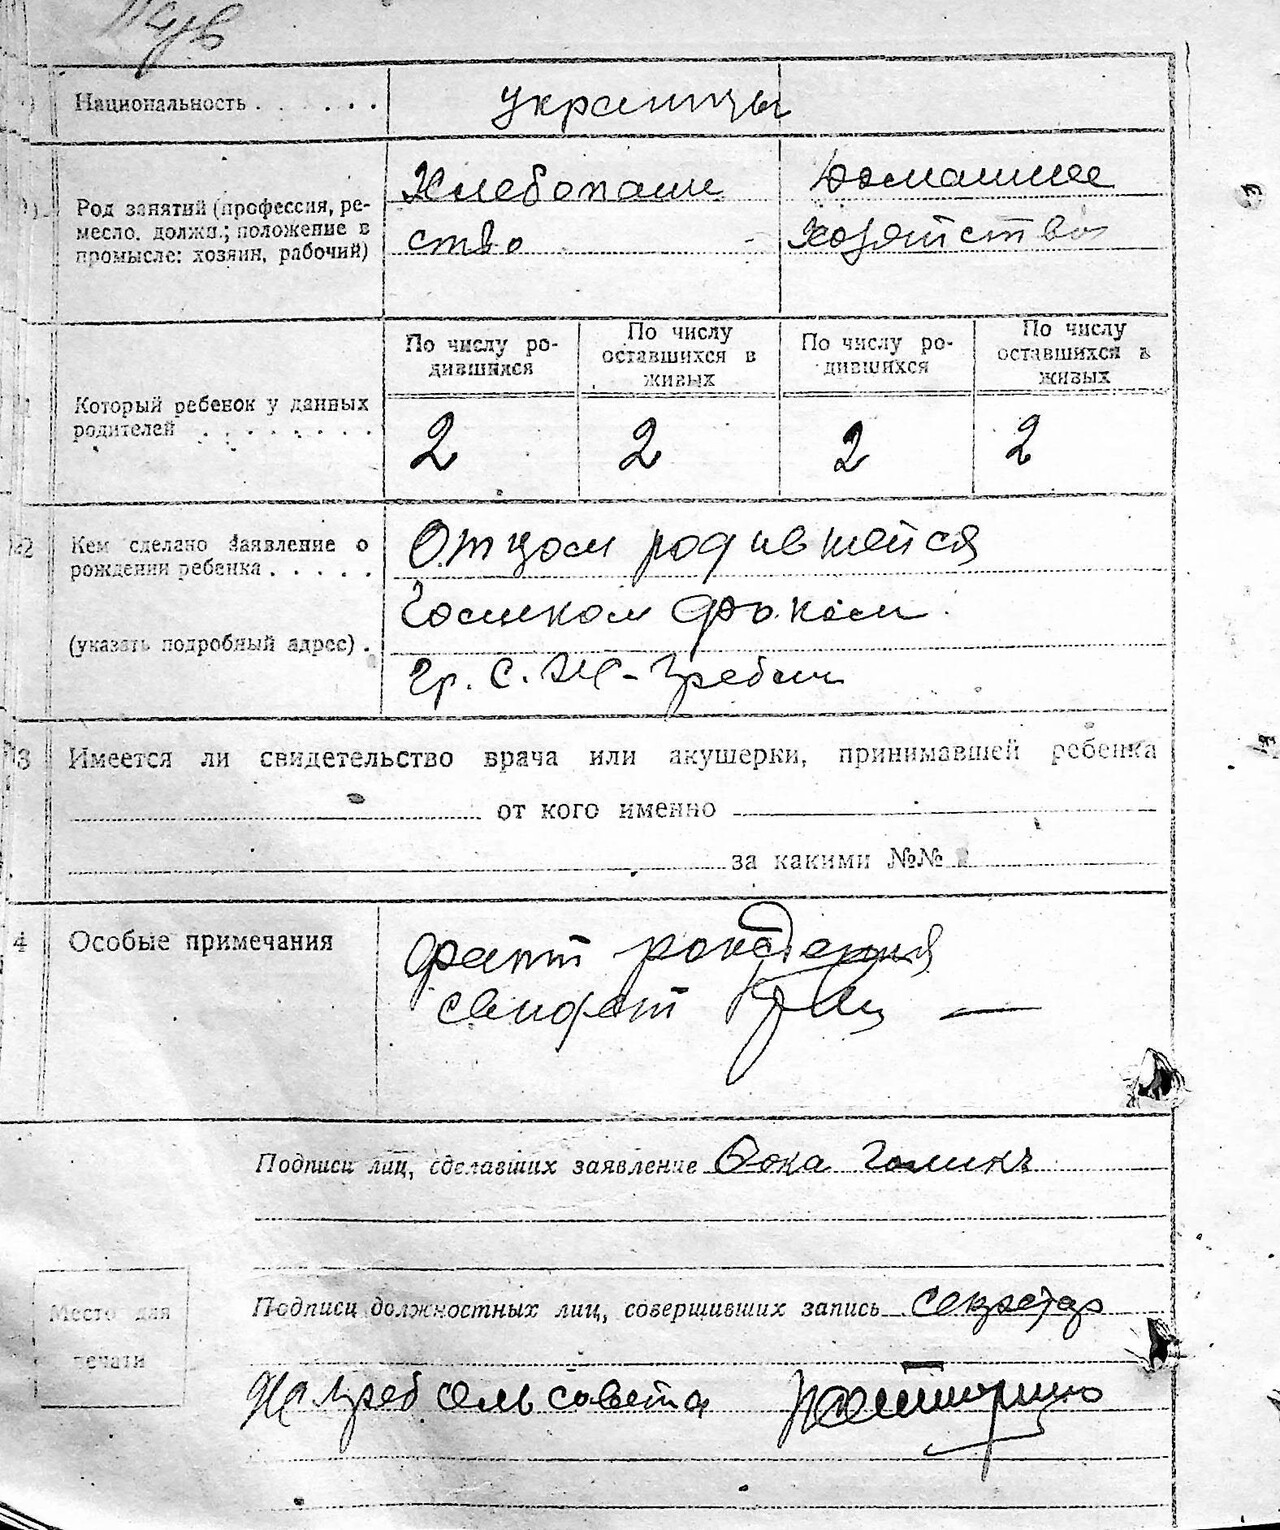 Национальность . . . . . . украинцы
Род занятий (профессия, ре-
месло, должн.; положение в
промысле: хозяин, рабочий)
Хлебопаше
ство
Домашнее
хозяйство
Который ребенок у данных
родителей . . . . . . . .
По числу ро-
дившихся
По числу
оставшихся в
живых
По числу ро-
дившихся
По числу
оставшихся в
живых
2 2 2 2
Кем сделано заявление о
рождении ребенка . . . . .
(указать подробный адрес) .
Отцом родившейся
Фокем
гр. с.
3 Имеется ли свидетельство врача или акушерки, принимавшей ребенка
от кого именно
за какими №№
4 Особые примечания
факт рождения
Подписи лиц, сделавших заявление Фока
Подписи должностных лиц, совершивших запись секретар
сельсовета
Место для
печати